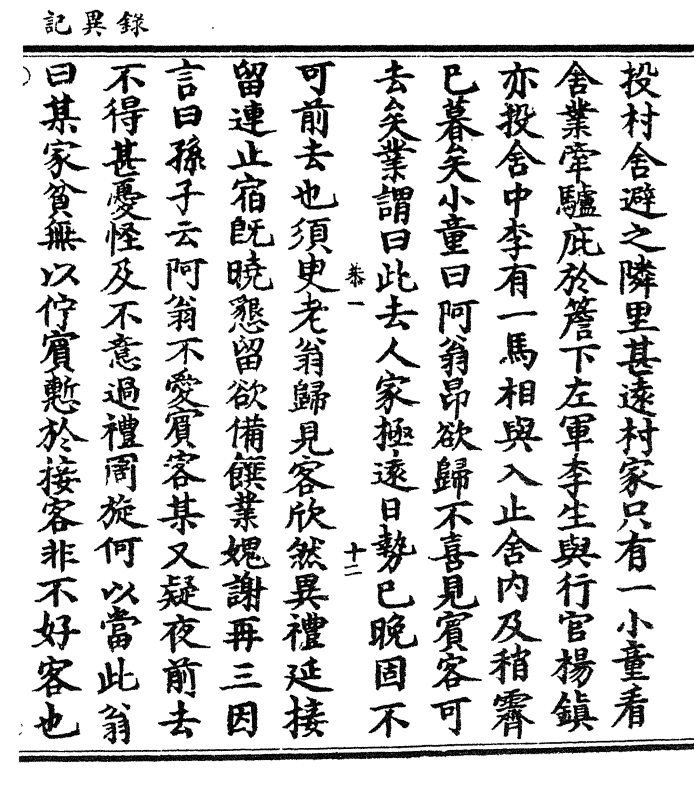 錄異記
投村舍避之隣里甚遠村家只有一小童看
舍業牽驢庇於簷下左軍李生與行官楊鎮
亦投舍中李有一馬相與入止舍内及稍霽
已暮矣小童曰阿翁昂欲歸不喜見賓客可
去矣業謂曰此去人家極遠日勢已晚固不
卷一
十二
可前去也須臾老翁歸見客欣然異禮延接
留連止宿旣曉懇留欲備饌業媿謝再三因
言曰孫子云阿翁不愛賓客某又疑夜前去
不得甚憂怪及不意過禮周旋何以當此翁
曰某家貧無以佇賓慙於接客非不好客也